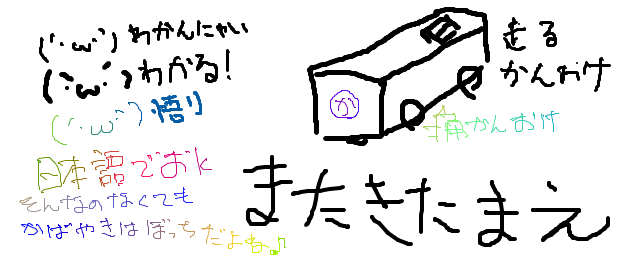 (´･ω･`) わかんにゃい
(´･ω･`) わかる!
(´･ω･`) 悟り
日本語でおk
そんなのなくても
かばやきはぼっちだよね♪
走る
かんおけ
か
痛かんおけ
またきたまえ